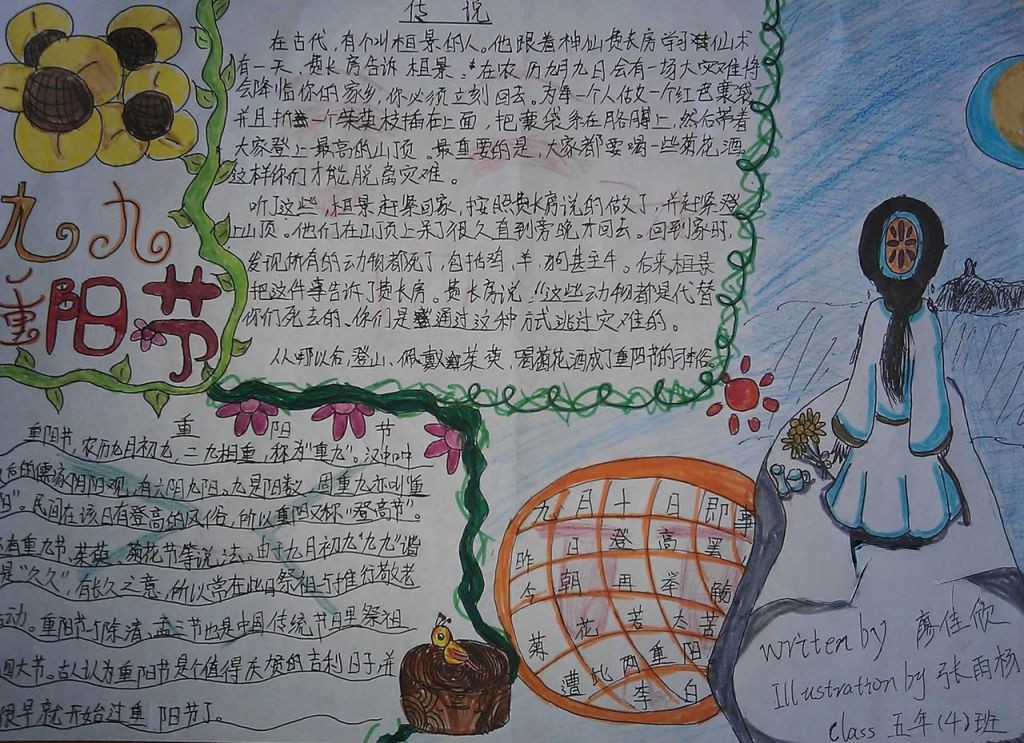 传 说
在古代,有个叫桓景的人。他跟着神仙费长房学习仙术
有一天,费长房告诉桓景:"在农历九月九日会有一场大灾难将
会降临你的家乡,你必须立刻回去。为每一个人做一个红色囊袋
并且折一个茱萸枝插在上面,把囊袋系在胳膊上,然后带着
大家登上最高的山顶。最重要的是,大家都要喝一些菊花酒。
这样你们才能脱离灾难。
听了这些,桓景赶紧回家,按照费长房说的做了,并赶紧登
上山顶。他们在山顶上呆了很久直到傍晚才回去。回到家时,
发现所有的动物都死了,包括鸡、羊、狗甚至牛。后来,桓景
把这件事告诉了费长房。费长房说:"这些动物都是代替
你们死去的、你们是通过这种方式逃过灾难的。
从那以后,登山、佩戴茱萸,喝菊花酒成了重阳节的习俗。
九九
重阳节
重 阳 节
重阳节,农历九月初九,二九相重,称为"重九"。汉中叶
后的儒家阴阳观,有六阴九阳。九是阳数,固重九亦叫"重
阳"。民间在该日有登高的风俗,所以重阳又称"登高节"。
有重九节、茱萸、菊花节等说法。由于九月初九"九九"谐
是"久久",有长久之意,所以常在此日祭祖与推行敬老
动。重阳节与除、清、盂三节也是中国传统节日里祭祖
四大节。古人认为重阳节是个值得庆贺的吉利日子,并
很早就开始过重阳节了。
九月十日即事
昨日登高罢
今朝再举觞
菊花苦太苦
遭此两重阳
李白
Written by 廖佳欣
Illustration by 张雨杨
class 五年(4)班